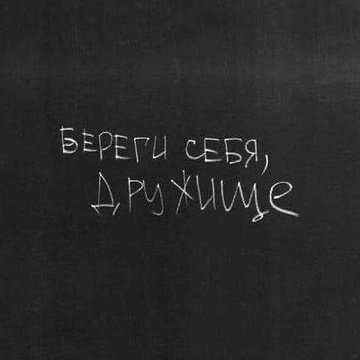 БЕРЕГИ СЕБЯ,
ДРУЖИЩЕ